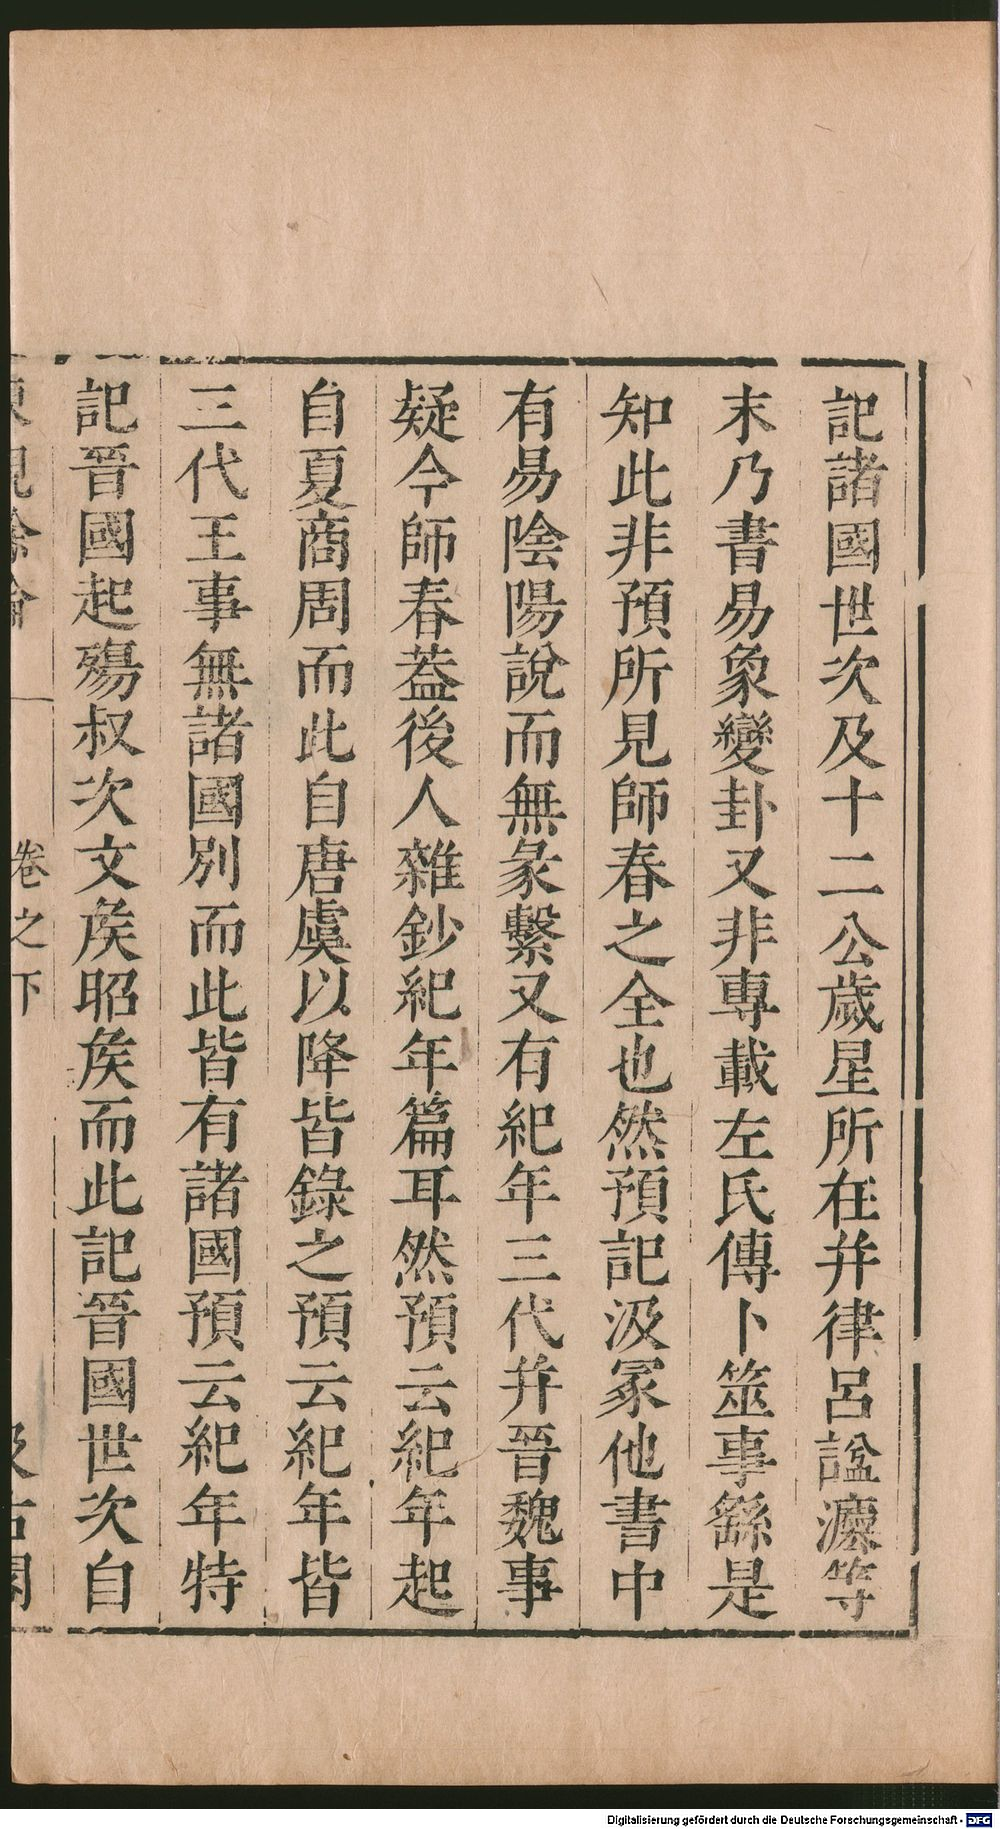 記諸國世次及十二公歲星所在并律呂諡灋等
末乃書易象變卦又非專載左氏傳卜筮事繇是
知此非預所見師春之全也然預記汲冢他書中
有易陰陽說而無彖繫又有紀年三代并晉魏事
疑今師春蓋後人雜鈔紀年篇耳然預云紀年起
自夏商周而此自唐虞以降皆錄之預云紀年皆
三代王事無諸國別而此皆有諸國預云紀年特
記晉國起殤叔次文矦昭矦而此記晉國世次自
東觀餘論
卷之下
汲古閣
Digitalisierung gefördert durch die Deutsche Forschungsgemeinschaft - DFG